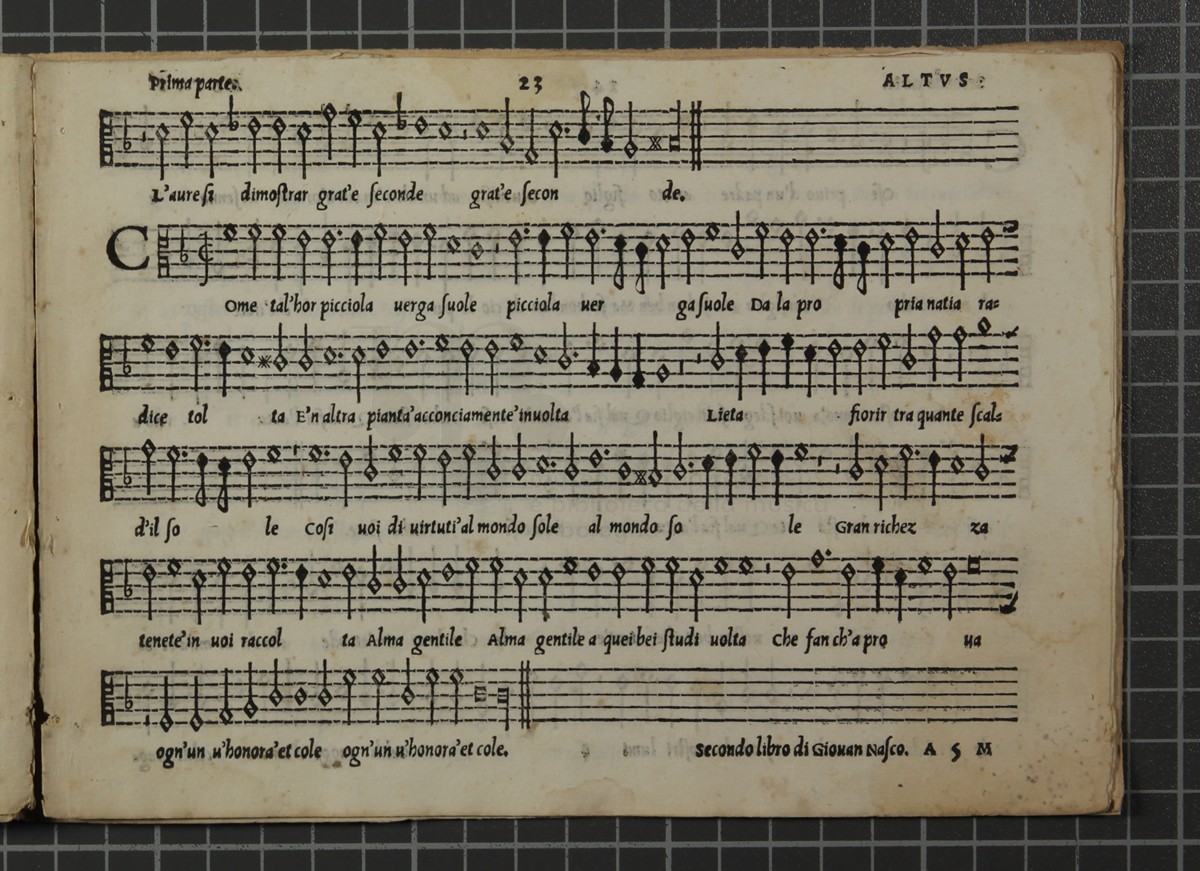 Prima parte. 23 ALTVS
L'aure si dimoſtrar grat'e ſeconde grat'e ſecon de.
COme tal'hor picciola uerga ſuole picciola uer ga ſuole Da la pro pria natia ra=
dice tol ta E'n altra pianta'acconciamente'inuolta Lieta fiorir tra quante ſcal=
d'il ſo le Coſi uoi di uirtuti'al mondo ſole al mondo ſo le Gran richez za
tenete'in uoi raccol ta Alma gentile Alma gentile a quei bei ſtudi uolta Che fan ch'a pro ua
ogn'un u'honora'et cole ogn'un u'honora'et cole. Secondo libro di Giouan Naſco. A 5 M